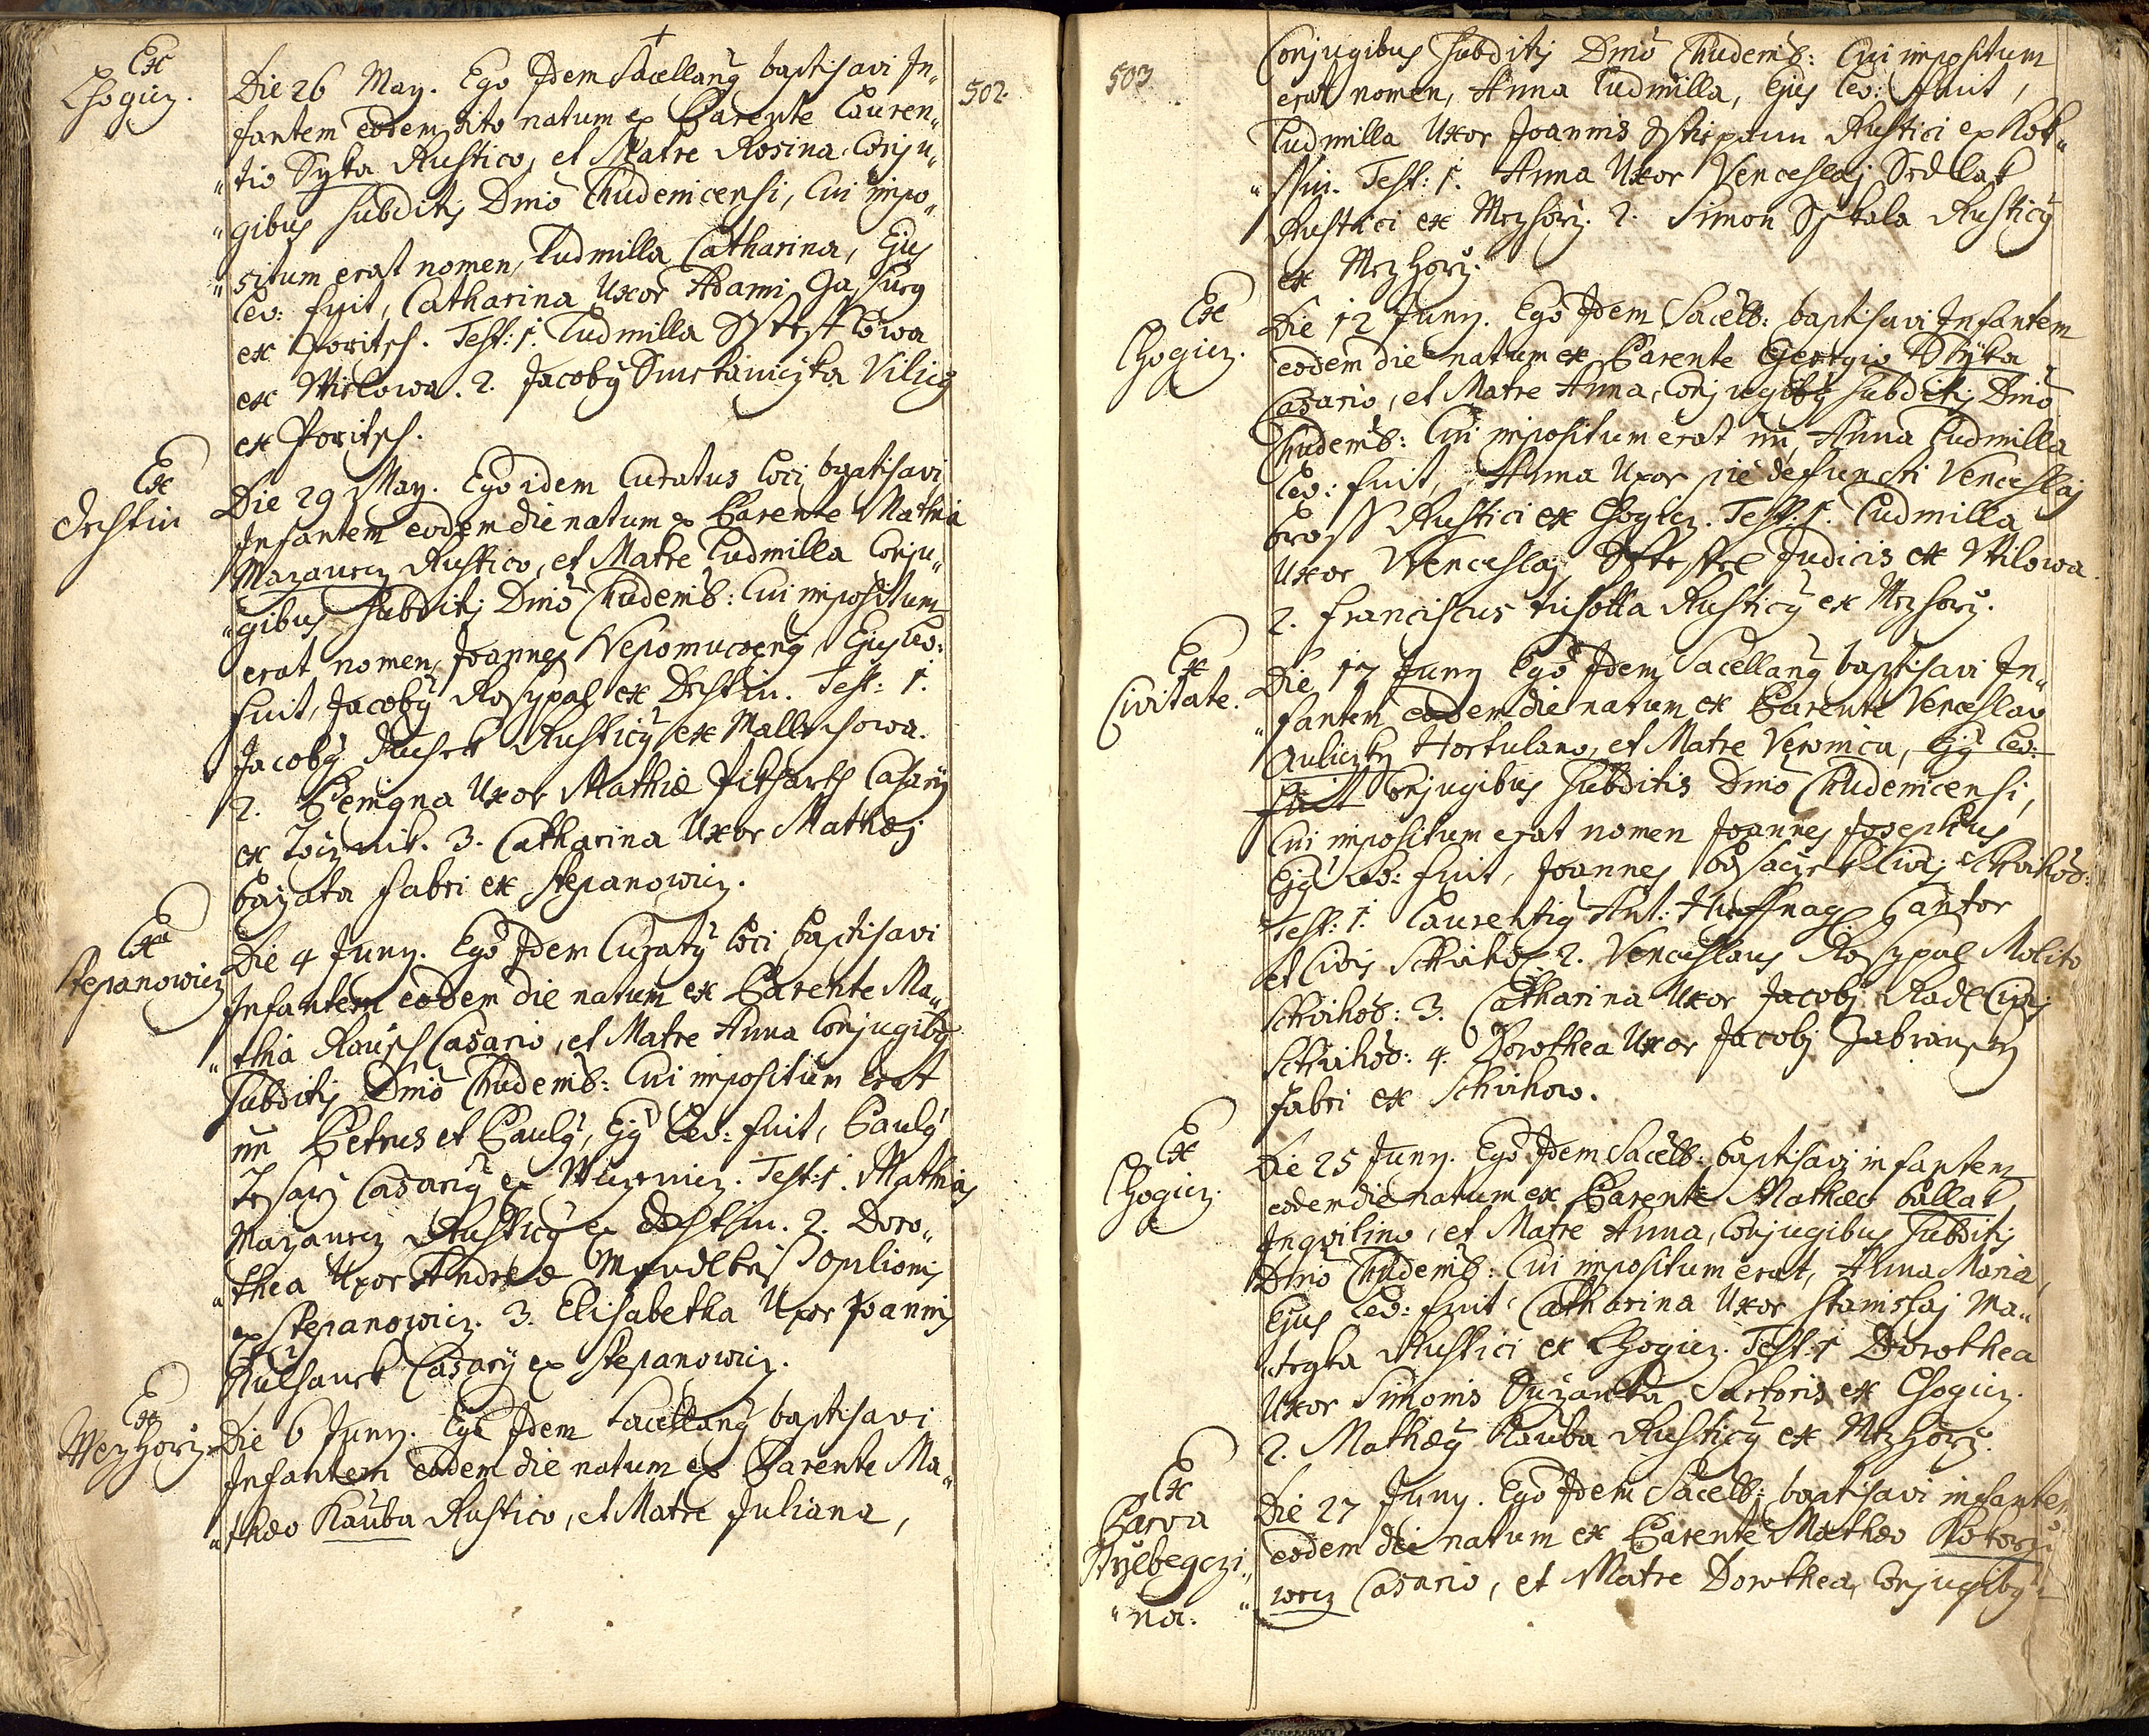 Ex
Chogicz.
Die 26 May. Ego Idem Sacellanq baptisavi In„
fantem eodem dito natum ex Parente Lauren„
„tio Syka Rustico, et Matre Rosina Conju„
„gibus subditis Dmō Chudenicensi, Cui impo„
„situm erat nomen, Ludmilla Catharina, Ejus
Lev: fuit, Catharina Uxor Adami
ex Poritsch. Test: 1. Ludmilla
ex Wilowa. 2. Jacobq Vilicq
ex Poritsch.
Ex
Destin
Die 29 May. Ego idem Curatus Loci bgatisavi
Infantem eodem die natum ex Parente Mathia
Mazaurez Rustico, et Matre Ludmilla Conju„
„gibus subditis Dmō Chudenib: Cui impositum
erat nomen, Joannes Nepomucenq Ejus Lev:
fuit, Jacobq Rosypal ex Destin. Test: 1.
Jacobq Rusticq ex Mallechowa.
2. Benigna Uxor Mathiæ Casarij
ex 3. Catharina Uxor Mathæj
Bayata Fabri ex Stepanowicz.
Ex
Stepanowicz
Die 4 Juny. Ego Idem Curatq Loci baptisavi
Infantem eodem die natum ex Parente Ma„
„thia Rausch Casario, et Matre Anna Conjugibq
Subditis Dmō Chudenib: Cui impositum erat
nn Petrus et Paulq, Ejq Lev: fuit, Paulq
Tesarz Casariq ex Test: 1. Mathias
Mazaurez Rusticq ex Destin. 2. Doro„
„thea Uxor Andreæ Opilionis
ex Stepanowicz. 3. Elisabetha Uxor Joannis
Casarij ex Stepanowicz.
Ex
Mezhorz.
Die 6 Juny. Ego Idem Sacellanq baptisavi
Infantem eodem die natum ex Parente Ma„
„thæo Kauba Rustico, et Matre Juliana,
502.
503.
Conjugibus Subditis Dmō Chudenib: Cui impositum
erat nomen, Anna Ludmilla, Ejus Lev: fuit,
Ludmilla Uxor Joannis Rustici ex Kok„
„ssin. Test: 1. Anna Uxor Venceslaj Sedlak
Rustici ex Mezhorz. 2. Simon Sskala Rusticq
ex Mezhorz.
Ex
Chogicz.
Die 12 Juny. Ego Idem Sacelb: baptisavi Infantem
eodem die natum ex Parente Georgio Syka
Casario, et Matre Anna, Conjugibq subditis Dmō
Chudenib: Cui impositum erat nn, Anna Ludmilla
Lev: fuit, Anna Uxor pie defuncti Venceslaj
Bross Rustici ex Chogicz. Test: 1. Ludmilla
Uxor Wenceslaj Judicis ex Wilowa
2. Franciscus Rusticq ex Mezhorz.
Ex
Civitate.
Die 17 Juny Ego Idem Sacellanq baptisavi In„
„fantem eodem die natum ex Parente Venceslao
Auliczky Hortulano, et Matre Veronica, Ejq Lev:
fuit Conjugibus Subditis Dmō Chudenicensi,
Cui impositum erat nomen Joannes Josephus
Ejq Lev: fuit, Joannes Civis Schvihov:
Test: 1. Laurentiq Ant: Huffnagl Cantor
et Civis Schvihov: 2. Venceslaus Rosypal Molito
Schvihov: 3. Catharina Uxor Jacobj Radl Civis
Schvihov: 4. Dorothea Uxor Jacobj
Fabri ex Schvihow.
Ex
Chogicz.
Die 25 Juny. Ego Idem Sacelb: baptisavi infantem
eodem die natum ex Parente Mathæo Ballak
Inqvilino, et Matre Anna, Conjugibus Subditis
Dmō Chudenib: Cui impositum erat, Anna Maria,
Ejus Lev: fuit Catharina Uxor Stanislaj Ma„
„tegka Rustici ex Chogicz. Test: 1 Dorothea
Uxor Simonis Sartoris ex Chogicz.
2. Mathæq Kauba Rusticq ex Mezhorz.
Ex
Parva
Strzbegczi„
„na.
Die 27 Juny. Ego Idem Sacelb: baptisavi infantem
eodem die natum ex Parente Mathæo
Casario, et Matre Dorothea, Conjugibq